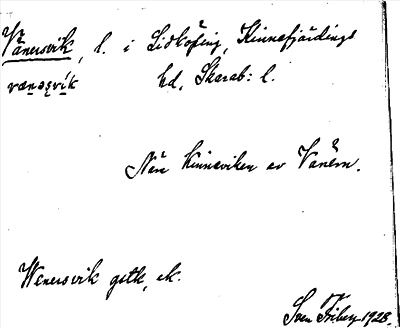 Vänersvik, l. i Lidköping, Kinnefjärdings
vænəṣvík hd, Skarab: l.
När Kinneviken av Vänern.
Wenersvik gstk, ek.
Sven Friberg 1928.